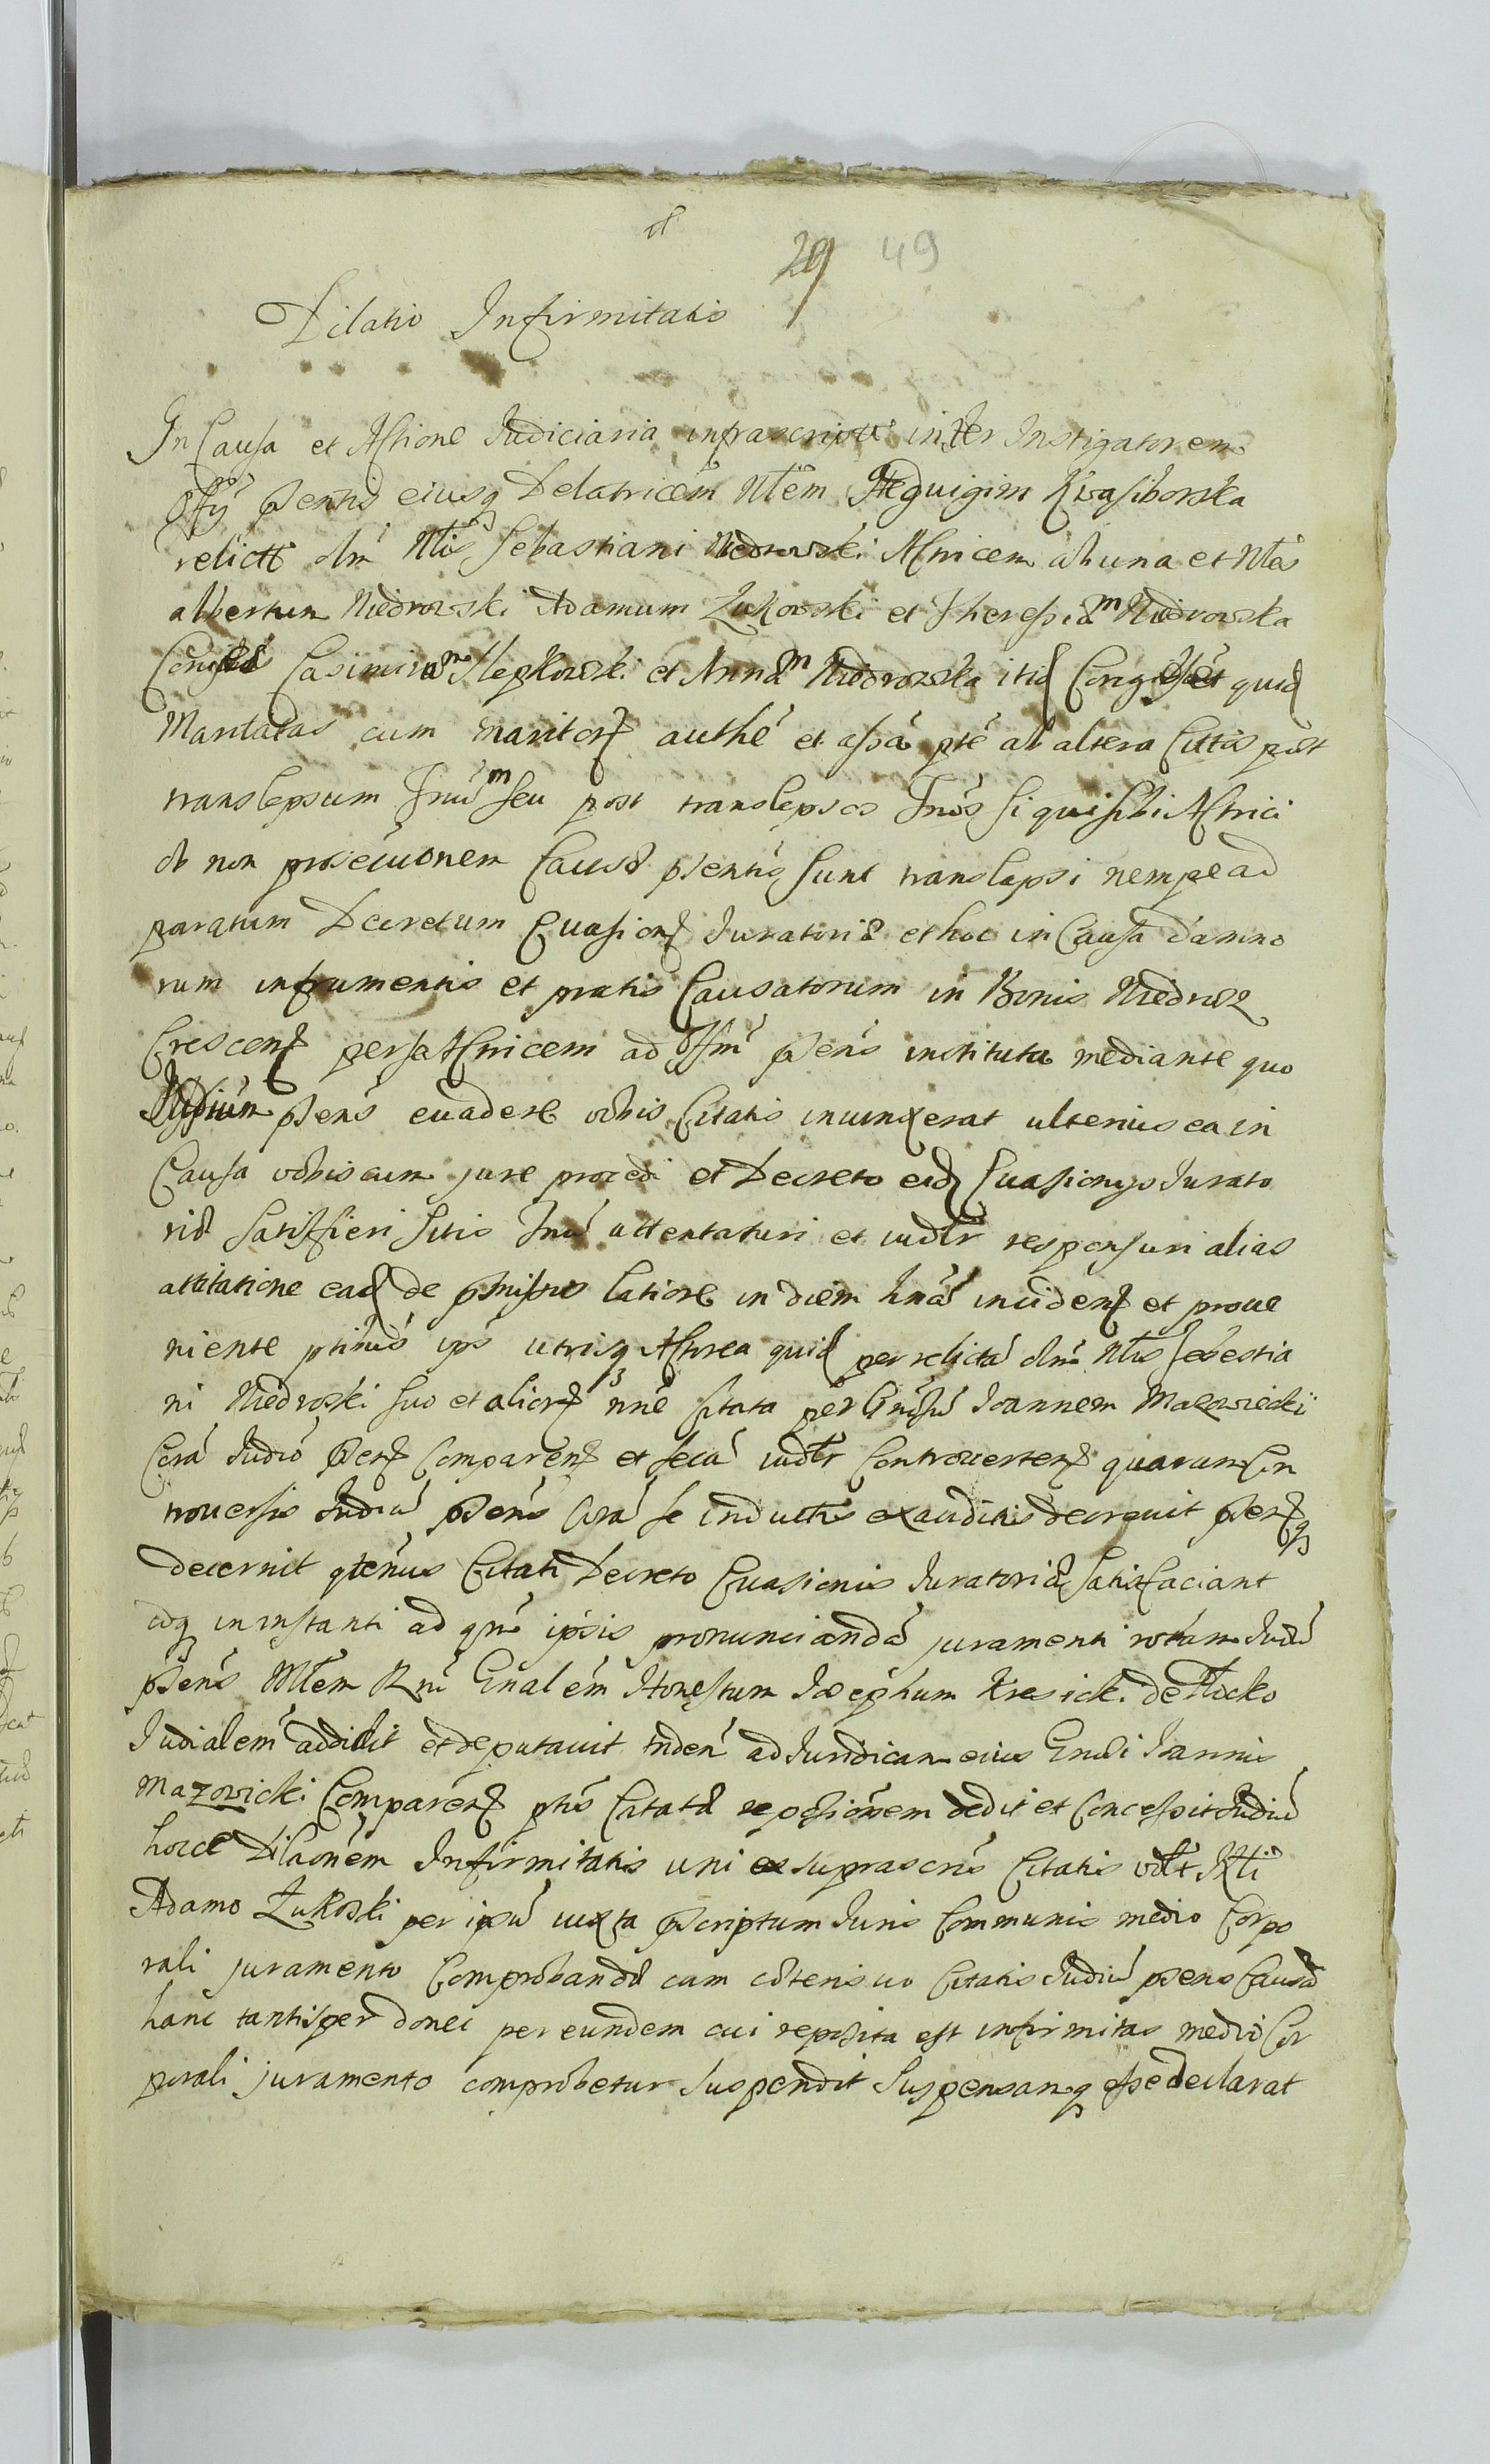 29 49
Dilatio Infirmitatis
In Causa et Actione Judiciaria infrascripta inter Instigatorem
Offÿ pſentis eiusq Delatricem Nlem Heduigim Kraſiborska
relictã olim Nlis Sebastiani Niedrowski Actricem ab una et Nles
albertum Niedrowski Adamum Zukowski et Theresiam Niedrowska
Coniuges Casimirum Slepkowski et Annam Niedrowska itid Coniuges et quid
Maritatas cum maritor authẽ et assã pte ab altera Cittis post
translepsum Tnum seu post translepsos Tnos si qui sibi Actrici
ob non prosecuonem Causæ pſentis sunt translapsi nempe ad
paratum Decretum Evasionis Juratoriæ et hoc in Causa damno
rum in frumentis et pratis Causatorum in Bonis Niedroz
Crescen per se Actricem ad Offm pſens instituta mediante quo
Judium pſens euadere vobis Citatis iniunxerat ulterius ea in
Causa vobiscum jure procedi et Decreto eid Euasionis Jurato
riæ satisfieri sitis Tnũ attentaturi et iudlr responsuri alias
attitatione ead de pmissis latiore in diem hnã inciden et proue
niente ptibus ipis utrisq Actorea quid per relictã olim Nlis Sebestia
ni Niedroski suo et alior nne Citata per Gnosũ Joannem Mazowiecki
Corã Judio pſen Comparen et secũ iudlr Controuerten quarum Con
trouersis Judiũ pſens Corã se inductis exauditis decreuit pſenq
decernit qtenus Citati Decreto Euasionis Juratoriæ satisfaciant
idq in instanti ad qm ipsis pronunciandã juramenti rotam Judiũ
pſens Mlem Rni Gnalem Honestum Josephum Kresicki de Plocko
Judialem addidit et deputauit tnden ad Juridicam eius Gnosi Joannis
Mazowicki Comparen ptis Citatæ reposiõnem dedit et Concessit Judiũ
hocce Dilaõnem Infirmitatis uni ex suprascris Citatis vdlt Nli
Adamo Zukoski per ipsũ iuxta pſcriptum Juris Communis medio Corpo
rali juramento Comprobandæ cum cæteris vo Citatis Judiũ pſens Causã
hanc tantisper donec per eundem cui reposita est infirmitas medio Cor
porali juramento comprobetur suspendit suspensamq esse declarat